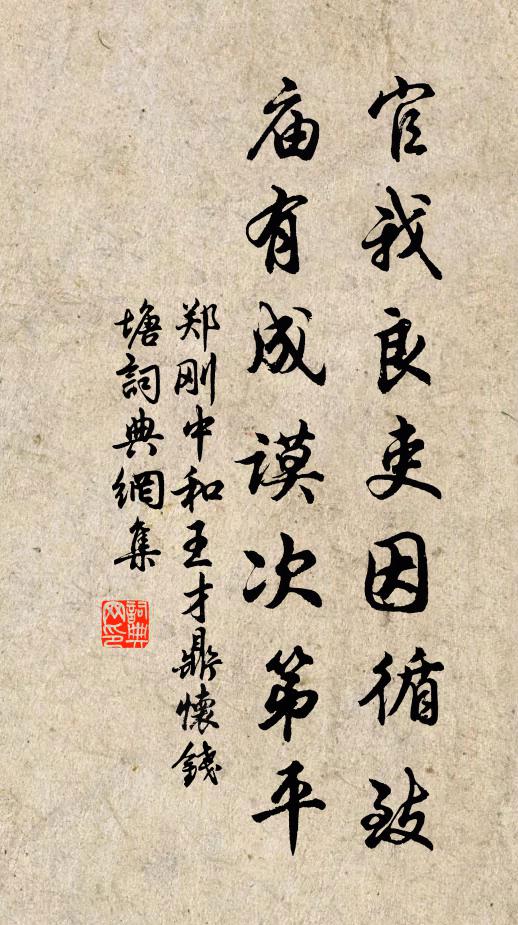 官我良吏因循致
庙有成谟次第平
郑刚中和王才鼎懷錢
塘詞典網集
詞典網印